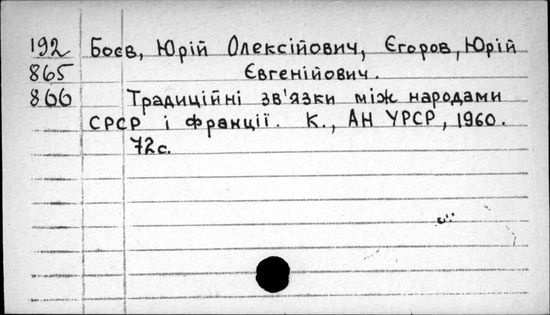 192 Боєв, Юрій Олексійович, Єгоров, Юрій
865 Євгенійович.
866 Традиційні зв'язки між народами
СРСР і Франції. К., АН УРСР, 1960.
72с.